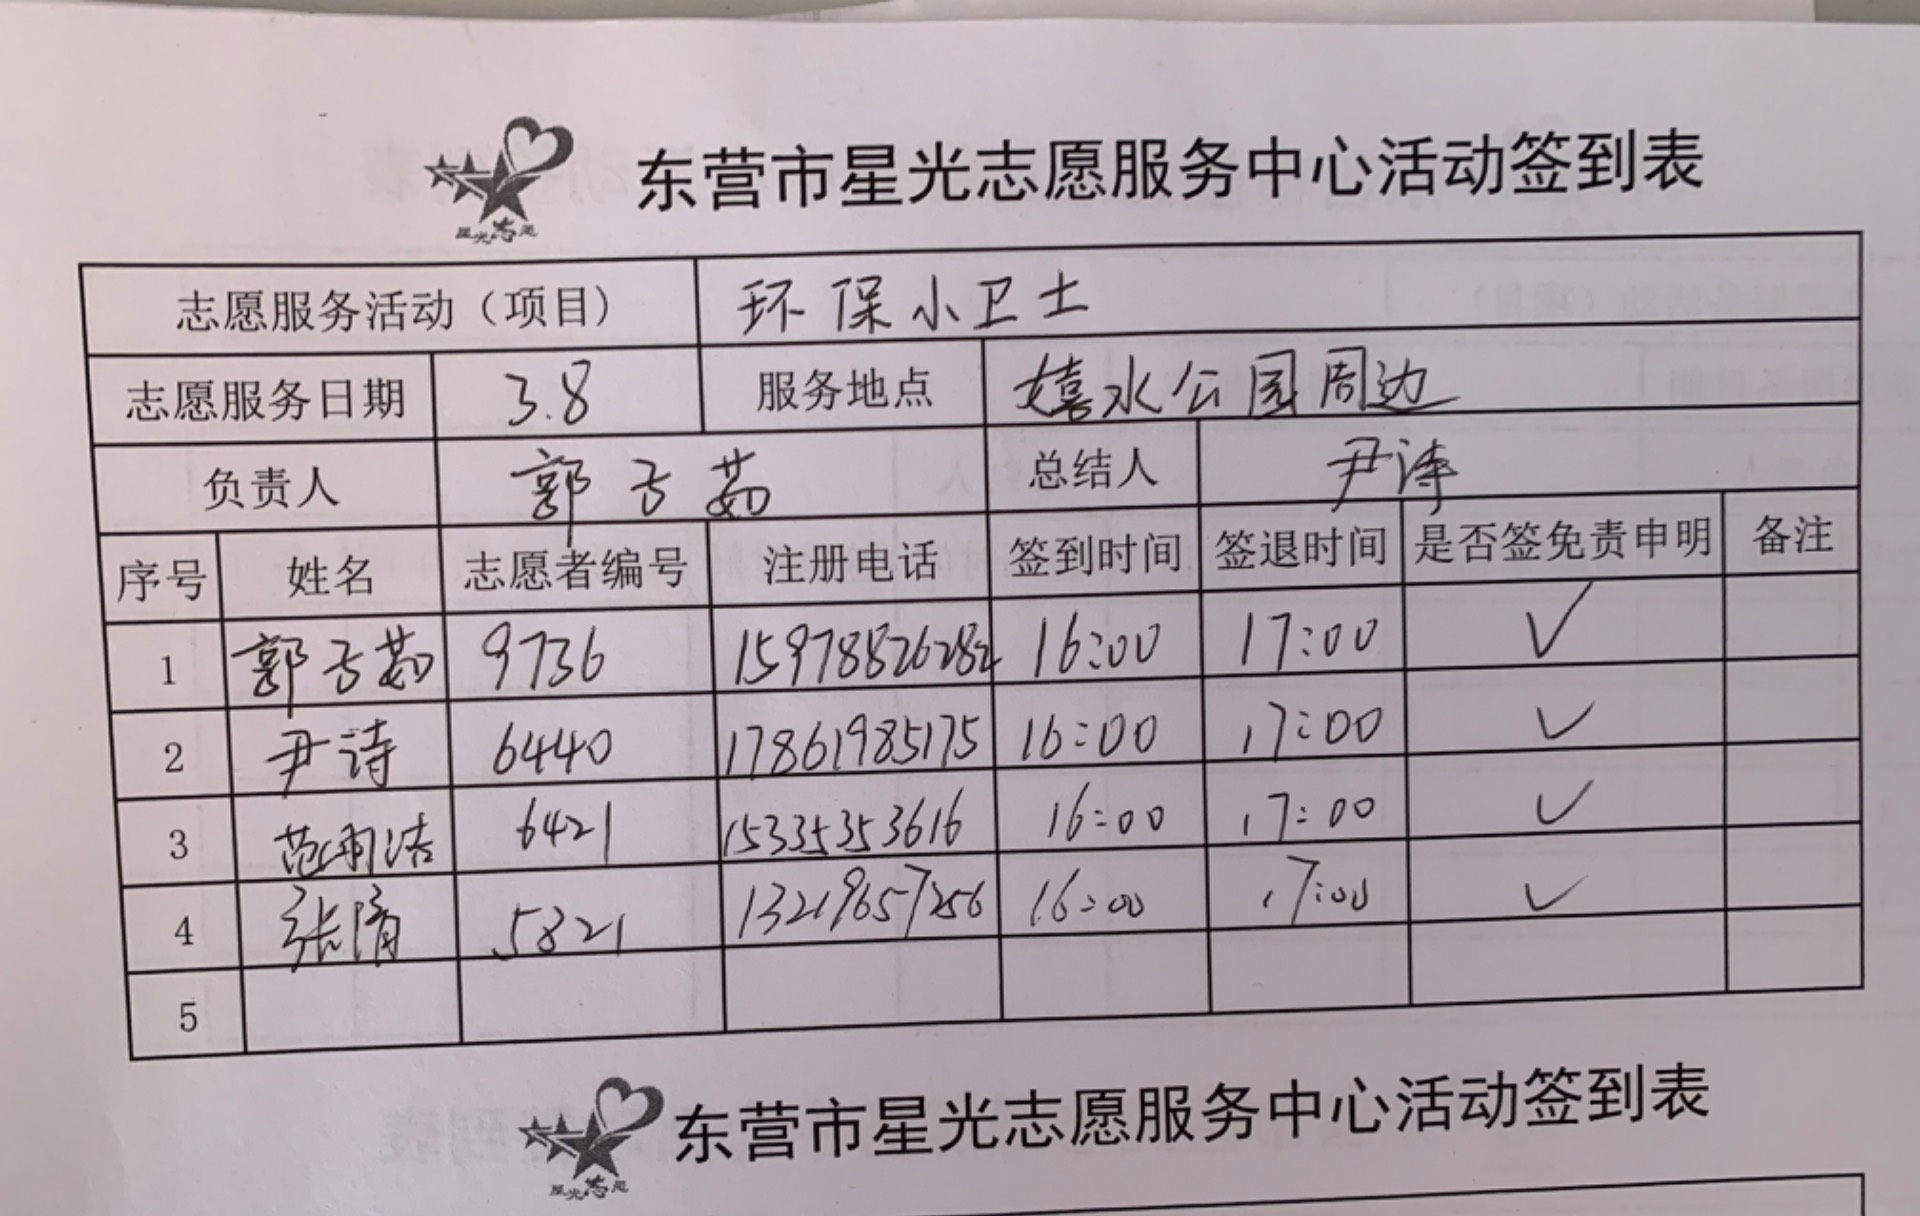 星光志愿
东营市星光志愿服务中心活动签到表
志愿服务活动（项目） 环保小卫士
志愿服务日期 3.8 服务地点 嬉水公园周边
负责人 郭子茹 总结人 尹诗
序号 姓名 志愿者编号 注册电话 签到时间 签退时间 是否签免责申明 备注
1 郭子茹 9736 15978826282 16:00 17:00 ✓
2 尹诗 6440 17861985175 16:00 17:00 ✓
3 范雨洁 6421 15335353616 16:00 17:00 ✓
4 张清 5821 13219657256 16:00 17:00 ✓
5
星光志愿
东营市星光志愿服务中心活动签到表